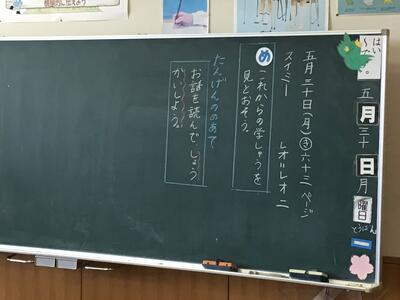 はい
五
月
三十
日
月
曜日
とうばん
五月三十日(月)③六十三ページ
スイミー
レオ=レオニ
め
これからの学しゅうを
見とおそう。
たんげんのめあて
お話を読んで、しょう
かいしよう。